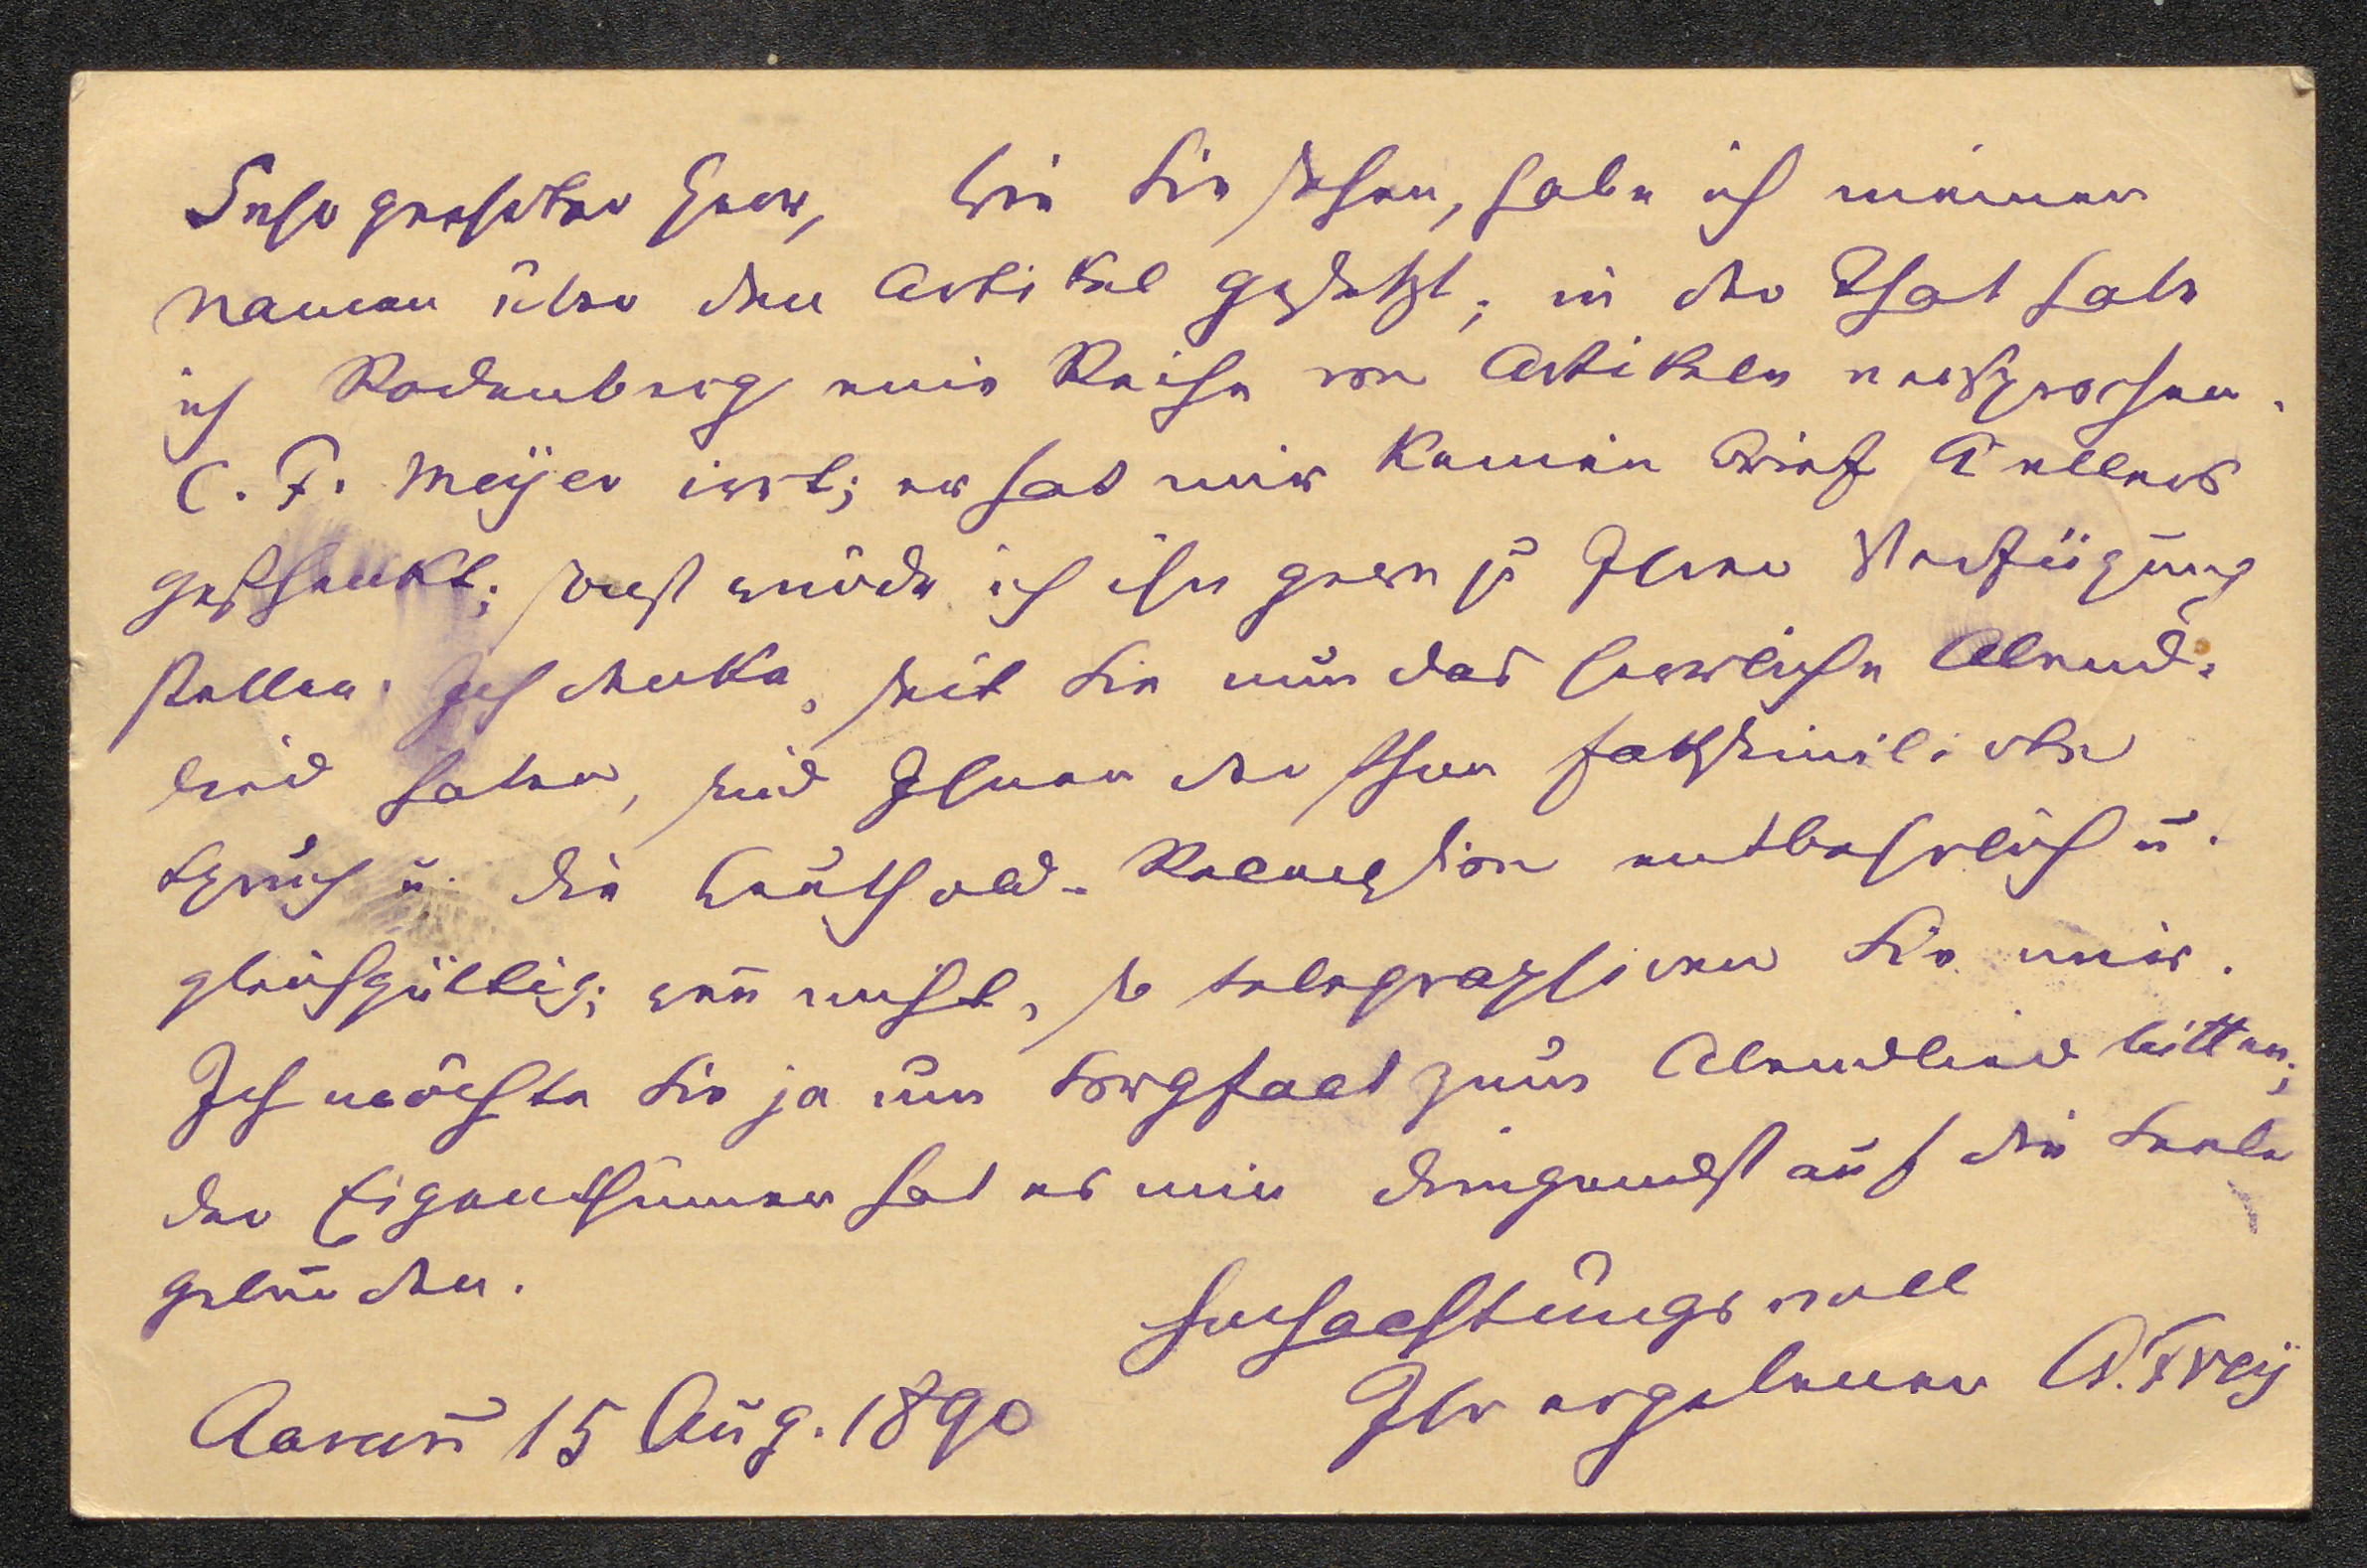 Sehr geehrter Herr, Wie Sie sehen, habe ich meinen
Namen über den Artikel gesetzt; in der That habe
ich Rodenberg eine Reihe von Artikeln versprochen.
C. F. Meyer irrt; er hat mir keinen Brief Kellers
geschenkt; sonst würde ich ihn gern zu Ihrer Verfügung
stellen. Ich denke, seit Sie nun das herrliche Abend-
lied haben, sind Ihnen der schon faksimilirte
Spruch u. die Leuthold-Recension entbehrlich u.
gleichgültig; wenn nicht, so telegraphiren Sie mir.
Ich möchte Sie ja um Sorgfalt zum Abendlied bitten;
der Eigenthümer hat es mir dringendst auf die Seele
gebunden.
Hochachtungsvoll
Ihr ergebener A. Frey
Aarau 15 Aug. 1890